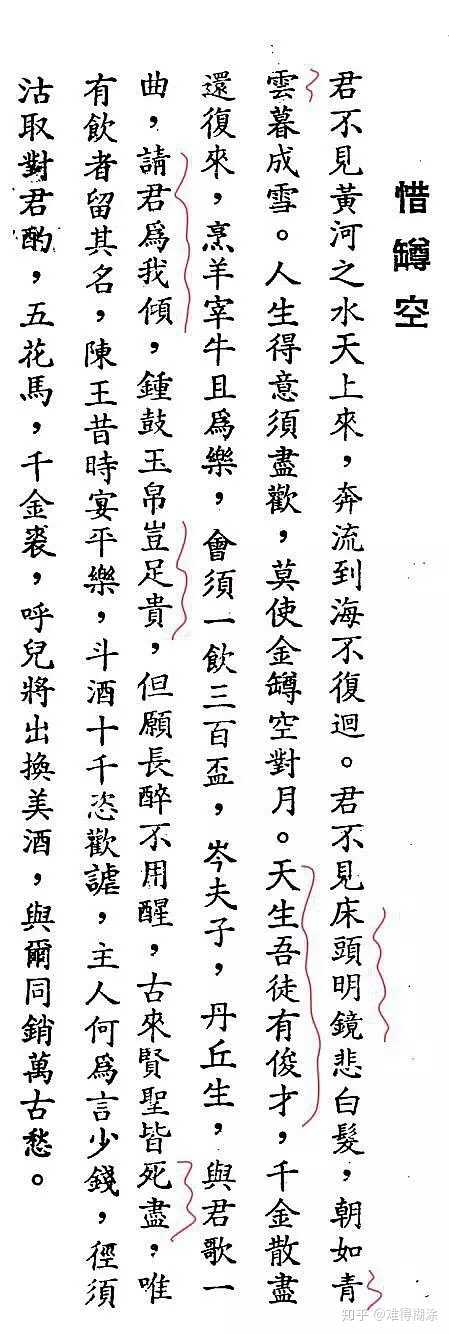 惜罇空
君不見黃河之水天上來，奔流到海不復迴。君不見床頭明鏡悲白髮，朝如青
雲暮成雪。人生得意須盡歡，莫使金罇空對月。天生吾徒有俊才，千金散盡
還復來，烹羊宰牛且爲樂，會須一飲三百盃，岑夫子，丹丘生，與君歌一
曲，請君爲我傾，鍾鼓玉帛豈足貴，但願長醉不用醒，古來賢聖皆死盡，唯
有飲者留其名，陳王昔時宴平樂，斗酒十千恣歡謔，主人何爲言少錢，徑須
沽取對君酌，五花馬，千金裘，呼兒將出換美酒，與爾同銷萬古愁。
知乎 @难得糊涂